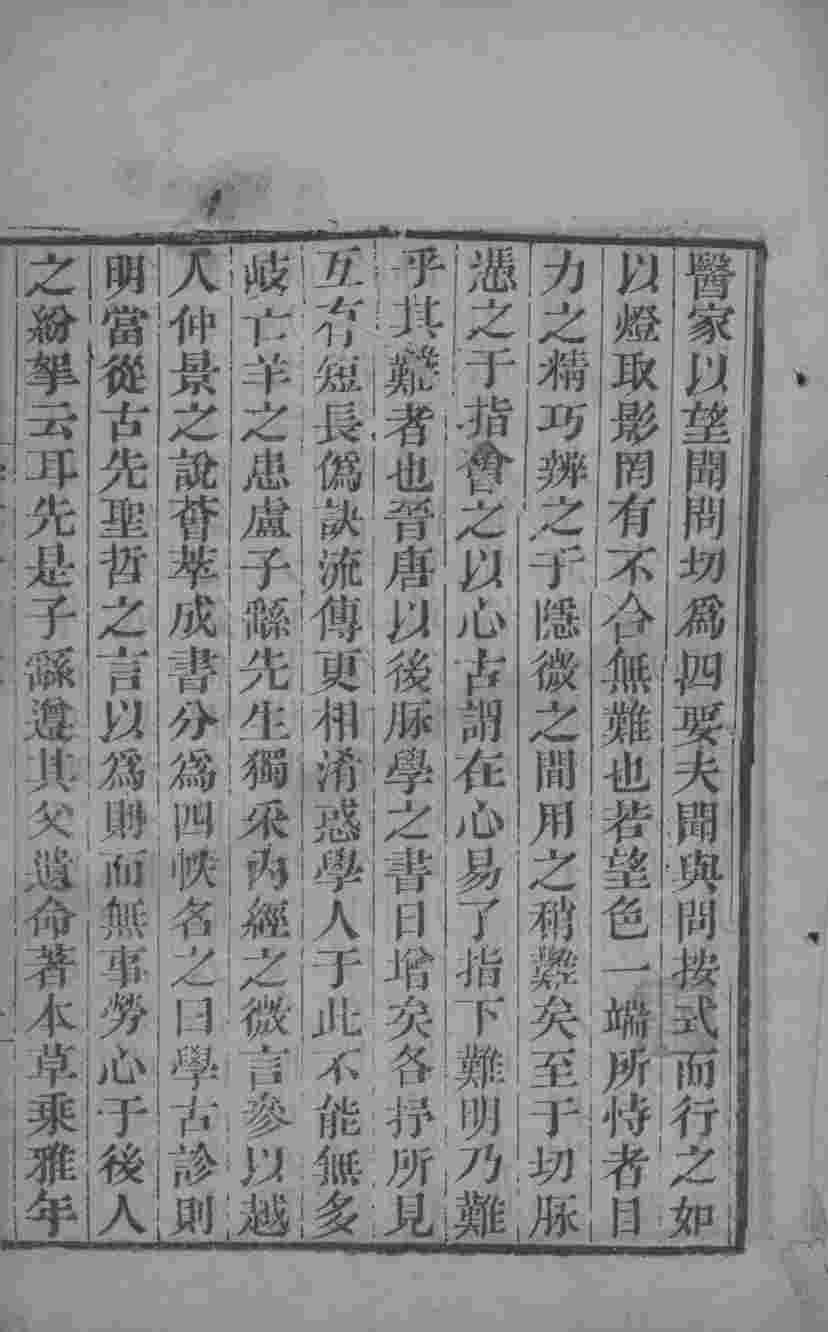 醫家以望聞問切爲四要夫聞與問按式而行之如
以燈取影罔有不合無難也若望色一端所恃者目
力之精巧辨之于隱微之間用之稍難矣至于切脉
憑之于指會之以心古謂在心易了指下難明乃難
乎其難者也晉唐以後脉學之書日增矣各抒所見
互有短長僞訣流傳更相淆惑學人于此不能無多
歧亡羊之患盧子繇先生獨采內經之微言參以越
人仲景之說薈萃成書分爲四帙名之曰學古診則
明當從古先聖哲之言以爲則而無事勞心于後人
之紛挐云耳先是子繇遵其父遺命著本草乘雅年